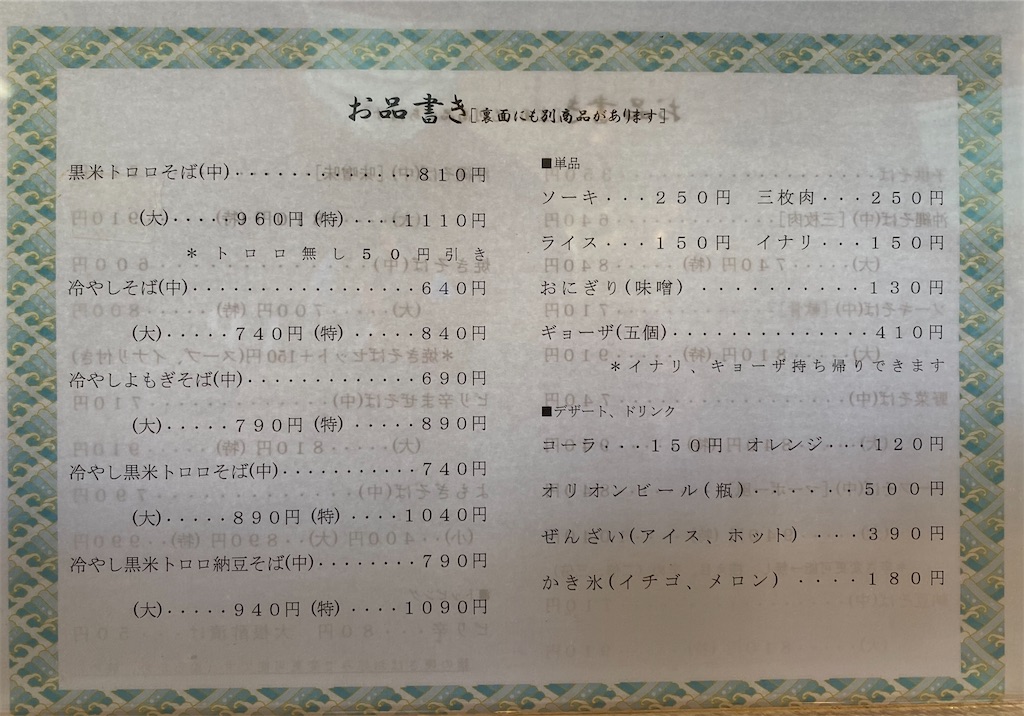 お品書き[裏面にも別商品があります]
黒米トロロそば(中)・・・・・・・・・・・・・810円
(大)・・・・960円 (特)・・・・1110円
＊トロロ無し50円引き
冷やしそば(中)・・・・・・・・・・・・・・・・640円
(大)・・・・・740円 (特)・・・・・840円
冷やしよもぎそば(中)・・・・・・・・・・・・690円
(大)・・・・・790円 (特)・・・・・890円
冷やし黒米トロロそば(中)・・・・・・・・・・740円
(大)・・・・・890円 (特)・・・・1040円
冷やし黒米トロロ納豆そば(中)・・・・・・・・790円
(大)・・・・・940円 (特)・・・・1090円
■単品
ソーキ・・・250円 三枚肉・・・250円
ライス・・・150円 イナリ・・・150円
おにぎり(味噌)・・・・・・・・・・130円
ギョーザ(五個)・・・・・・・・・・・・410円
＊イナリ、キョーザ持ち帰りできます
■デザート、ドリンク
コーラ・・・150円 オレンジ・・・120円
オリオンビール(瓶)・・・・・・500円
ぜんざい(アイス、ホット)・・・390円
かき氷(イチゴ、メロン)・・・・180円